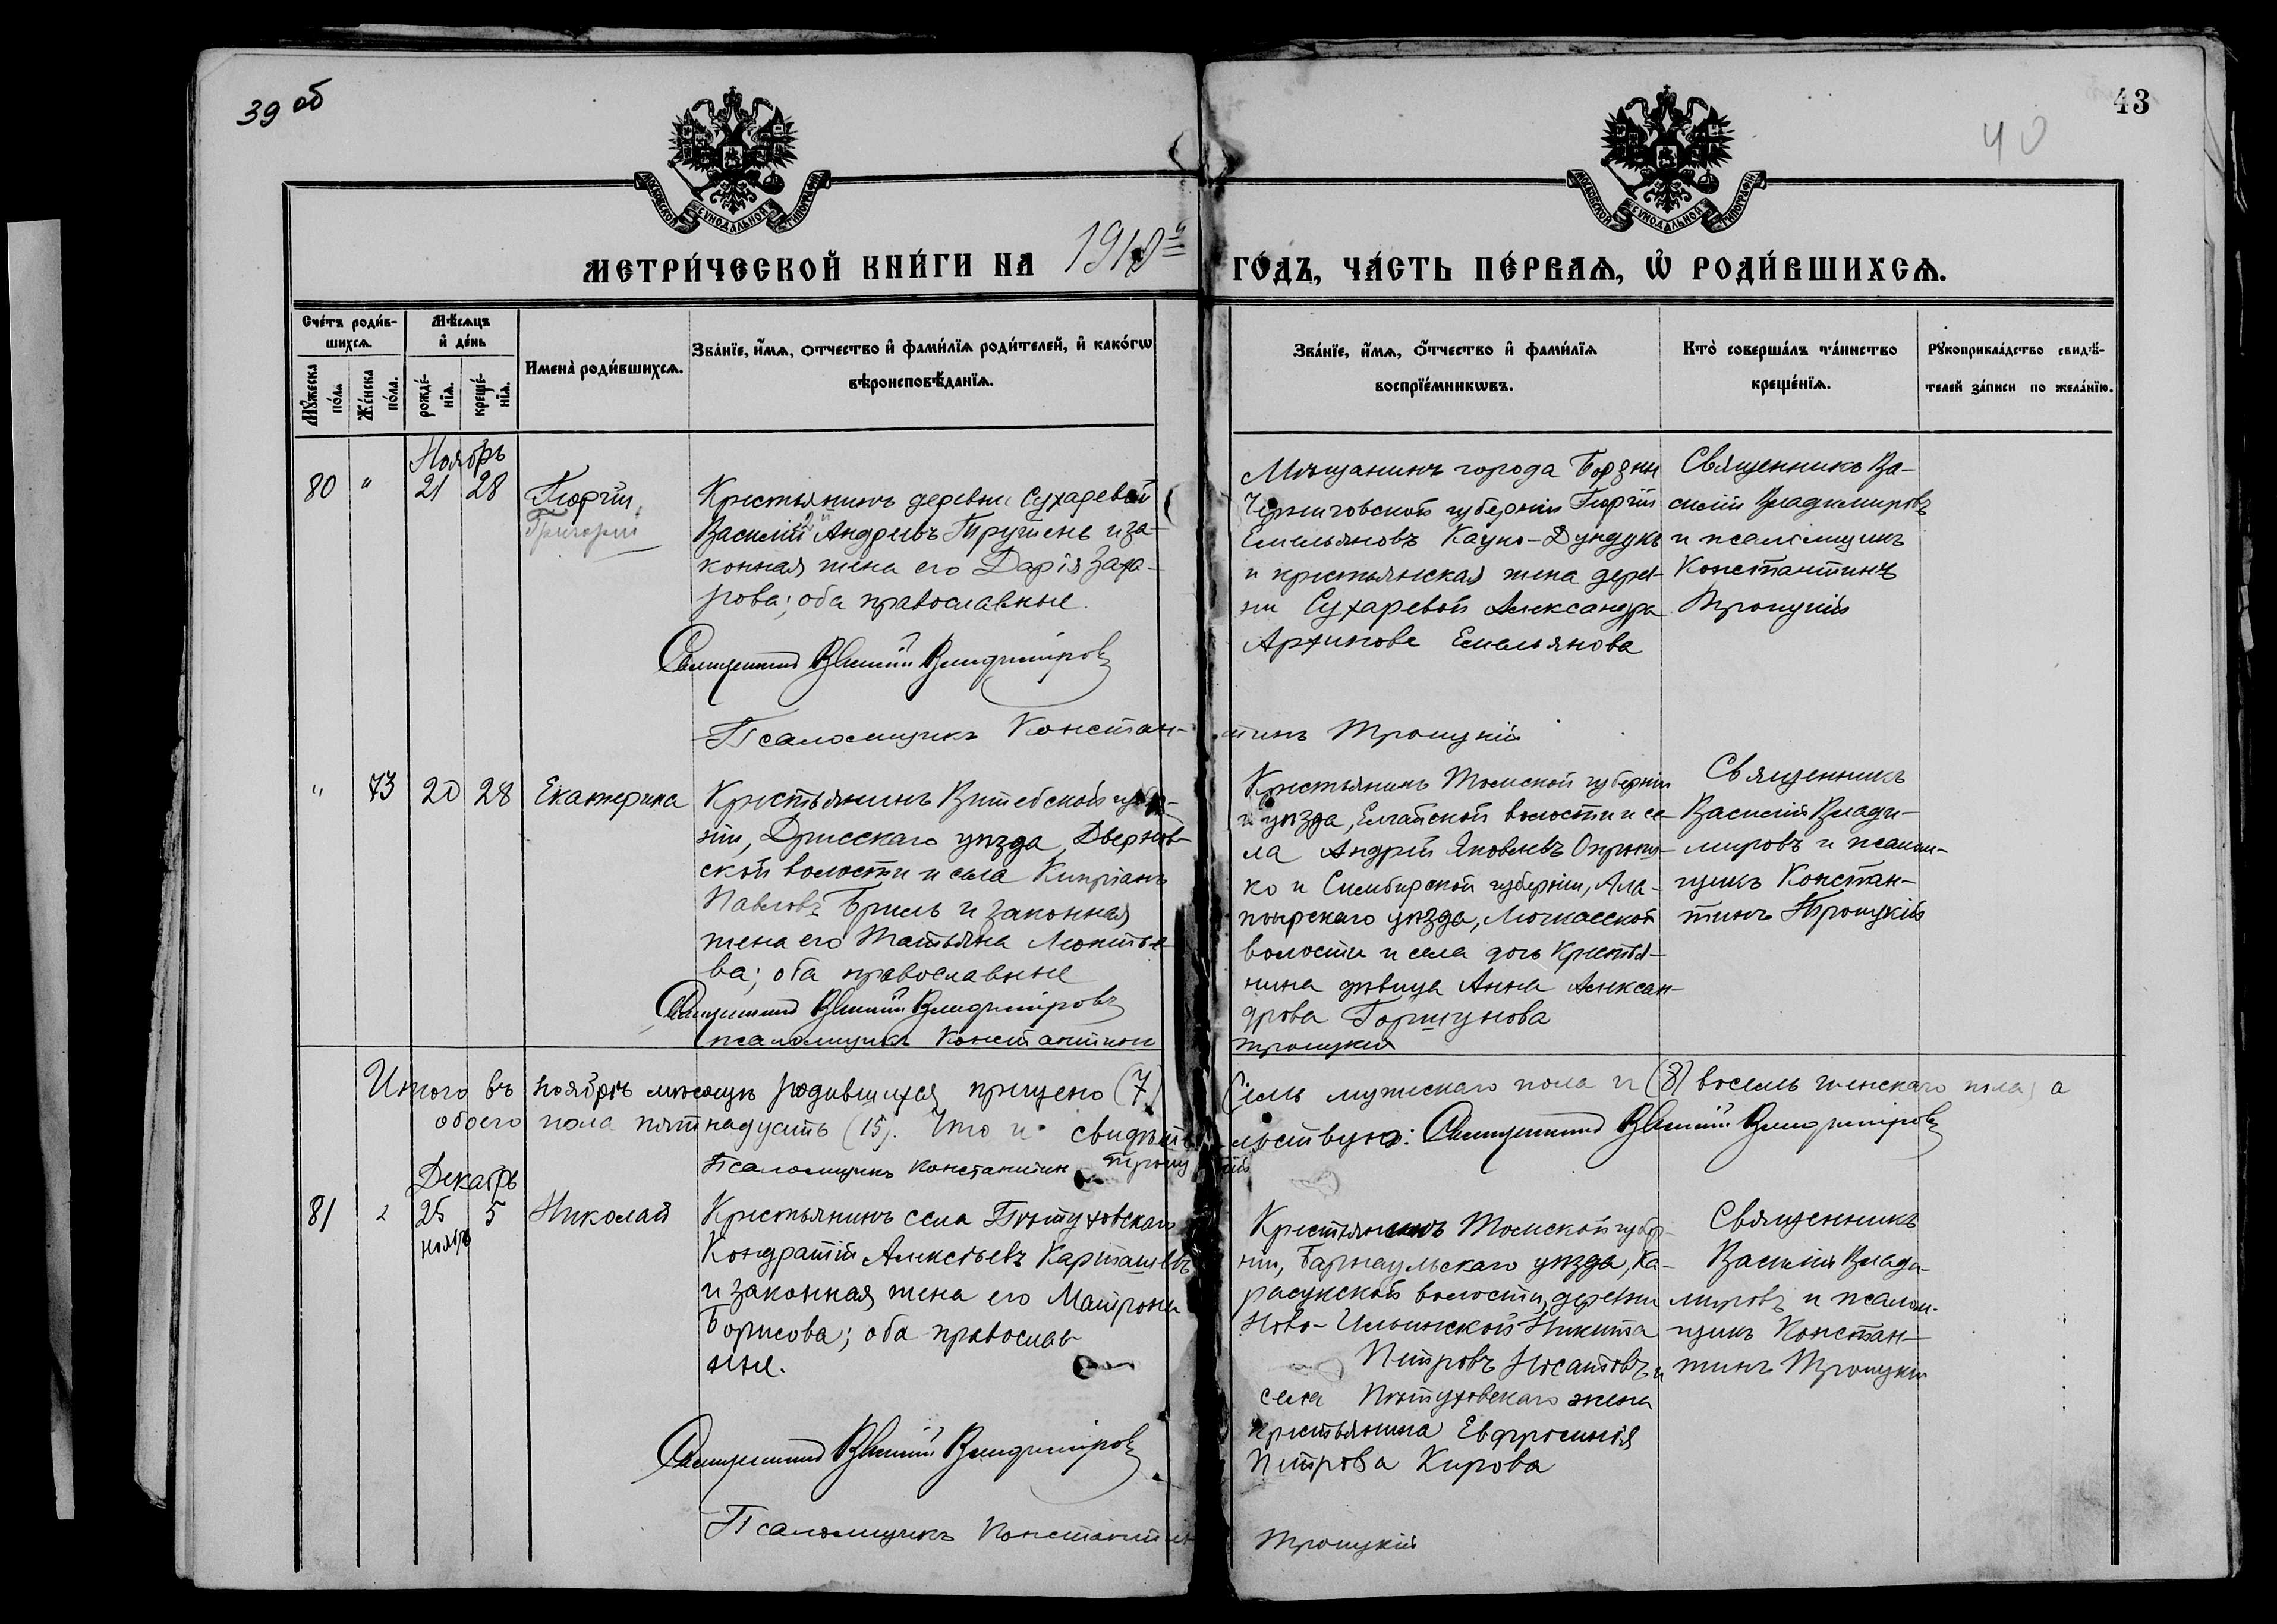 39 об
43
40
МОСКОВСКОЙ СУНОДАЛЬНОЙ ТИПОГРАФІИ
МОСКОВСКОЙ СУНОДАЛЬНОЙ ТИПОГРАФІИ
МЕТРИ́ЧЕСКОЙ КНИ́ГИ НА 1910й ГО́ДЪ, ЧА́СТЬ ПЕ́РВАѦ, Ѽ РОДИ́ВШИХСѦ.
Сче́тъ роди́в-
шихсѧ.
Мѣ́сѧцъ
и҆ де́нь
Мꙋ́жеска
по́ла.
Же́нска
по́ла.
рожде́-
нїѧ.
креще́-
нїѧ.
Имена̀ роди́вшихсѧ.
Зва́нїе, и҆́мѧ, ѻ҆́тчество и҆ фами́лїѧ роди́телей, и҆ како́гѡ
вѣроисповѣ́данїѧ.
Зва́нїе, и҆́мѧ, ѻ҆́тчество и҆ фами́лїѧ
воспрїе́мникѡвъ.
Кто̀ соверша́лъ та́инство
креще́нїѧ.
Рꙋкоприкла́дство свидѣ́-
телей за́писи по жела́нїю.
Ноябрь
80 " 21 28
Георгій
Григорій
Крестьянинъ деревни Сухаревой
Василій 2й Андреевъ Трутень и за-
конная жена его Дарія Заха-
рова; оба православные.
Священникъ Василій Владиміровъ
Мѣщанинъ города Борзны
Черниговской губерніи Георгій
Емельяновъ Кауно-Дундукъ
и крестьянская жена дерев-
ни Сухаревой Александра
Архипова Емельянова
Священникъ Ва-
силій Владимировъ
и псаломщикъ
Константинъ
Троицкій
Псаломщикъ Константинъ Троицкій
" 73 20 28 Екатерина
Крестьянинъ Витебской губер-
ніи, Дрисскаго уѣзда, Двернов-
ской волости и села Кипріанъ
Павловъ Бриль и законная
жена его Татьяна Леонтье-
ва; оба православные
Священникъ Василій Владиміровъ
псаломщикъ Константинъ Троицкій
Крестьянинъ Томской губерніи
и уѣзда, Елгайской волости и се-
ла Андрей Яковлевъ
ко и Симбирской губерніи, Ала-
тырскаго уѣзда,
волости и села дочь крестья-
нина дѣвица Анна Алексан-
дрова Горшунова
Священникъ
Василій Влади-
мировъ и псалом-
щикъ Констан-
тинъ Троицкій
Итого въ ноябрѣ мѣсяцѣ родившихся крещено (7) семь мужескаго пола и (8) восемь женскаго пола, а
обоего пола пятнадцать (15). Что и свидѣтельствуютъ: Священникъ Василій Владиміровъ
Псаломщикъ Константин Троицкій
Декабрь
81 " 25 5 Николай
ноябр
Крестьянинъ села Пѣтуховскаго
Кондратій Алексѣевъ Карташевъ
и законная жена его Матрона
Борисова; оба православ-
ные.
Священникъ Василій Владиміровъ
Крестьянинъ Томской губер-
ніи, Барнаульскаго уѣзда, Ка-
расукской волости, деревни
Ново-Ильинской Никита
Петровъ Носатовъ и
села Пѣтуховскаго жена
крестьянина Евфросинія
Петрова Кирова
Священникъ
Василій Влади-
мировъ и псалом-
щикъ Констан-
тинъ Троицкій
Псаломщикъ Константинъ Троицкій